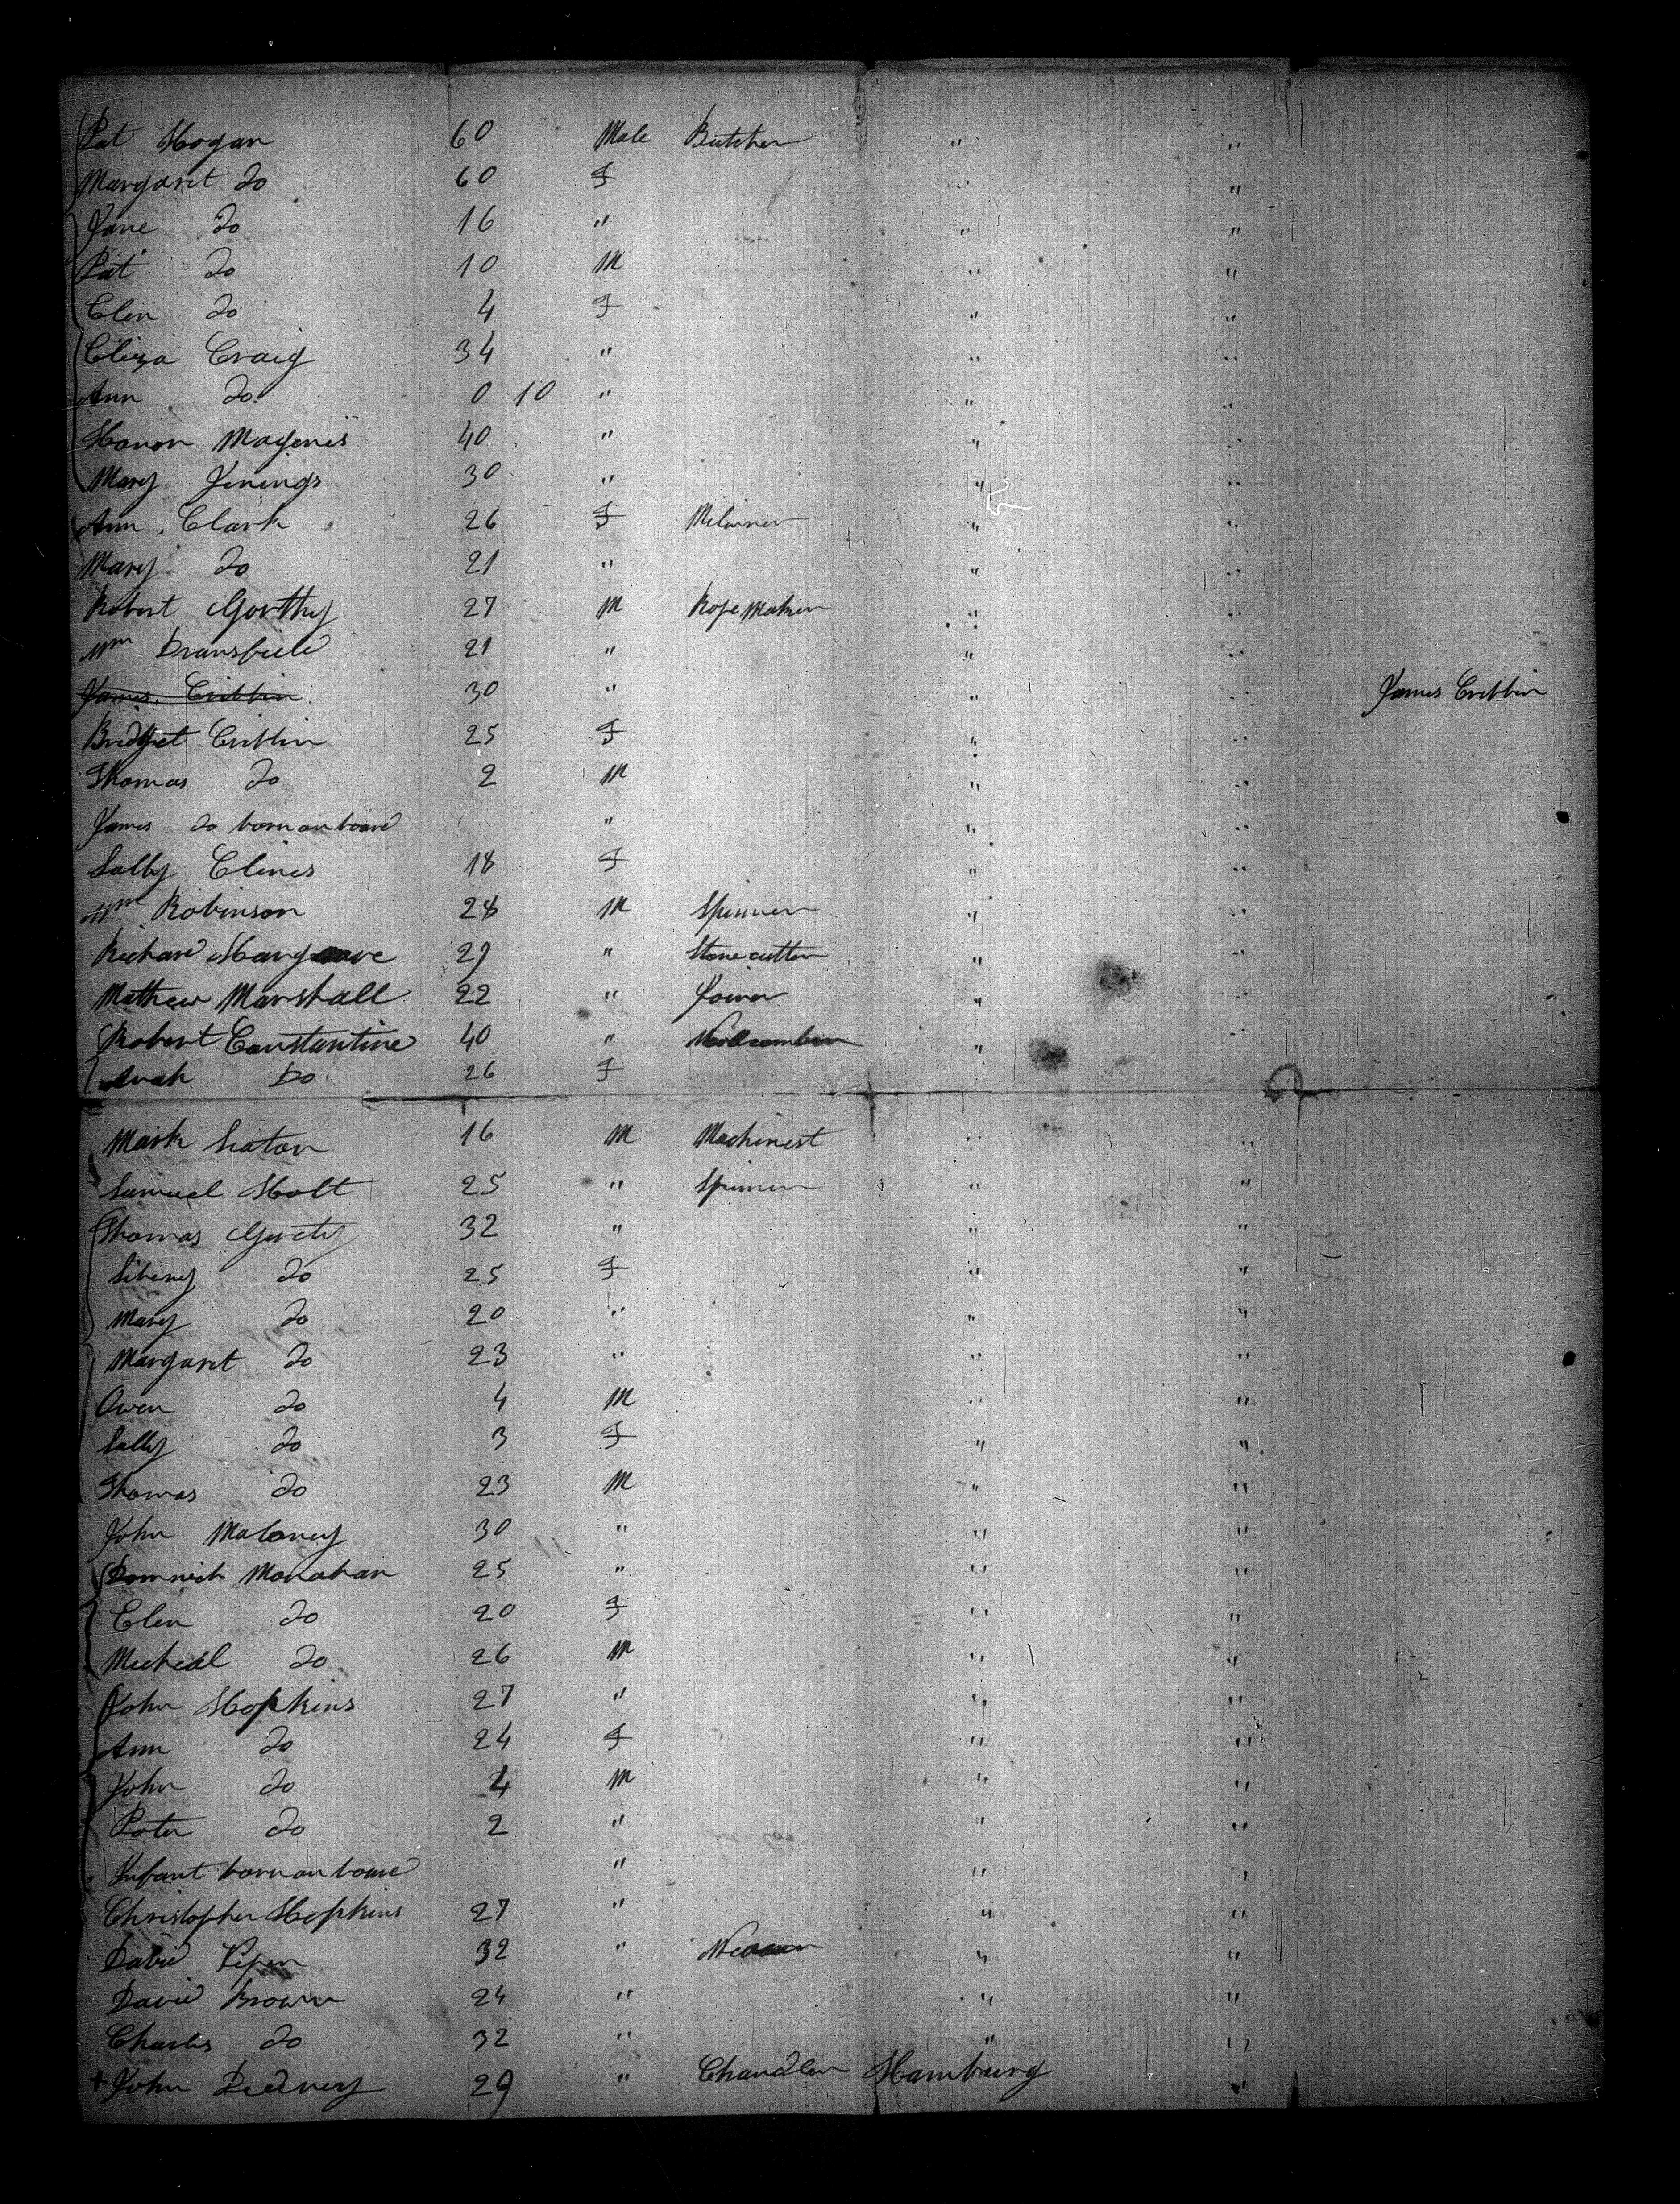 Pat Hogan 60 Male Butcher " "
Margaret Do 60 F " "
Jane Do 16 " " "
Pat Do 10 M " "
Elen Do 4 F " "
Eliza Craig 34 " " "
Ann Do 0 10 " " "
Honor Magenis 40 " " "
Mary Jenings 30 " " "
Ann Clark 26 F Miliner " "
Mary Do 21 " " "
Robert Gorthy 27 M Rope Maker " "
Wm Dransfield 21 " " "
James Cribbin 30 " " " James Cribbin
Bridget Cribbin 25 F " "
Thomas Do 2 M " "
James Do born on board " " "
Sally Clines 18 F " "
Wm Robinson 28 M Spinner " "
Richard Hargrave 29 " Stone cutter " "
Mathew Marshall 22 " Joiner " "
Robert Constantine 40 " Woolcomber " "
Do 26 F
Mark Seaton 16 M Machinest " "
Samuel Holt 25 " Spinner " "
Thomas 32 " " "
Do 25 F " "
Mary Do 20 " " "
Margaret Do 23 " " "
Owen Do 4 M " "
Sally Do 3 F " "
Thomas Do 23 M " "
John Maloney 30 " " "
Domnick Monahan 25 " " "
Elen Do 20 F " "
Micheal Do 26 M " "
John Hopkins 27 " " "
Ann Do 24 F " "
John Do 4 M " "
Peter Do 2 " " "
Infant born on board " " "
Christopher Hopkins 27 " " "
David 32 " Weaver " "
David Brown 24 " " "
Charles Do 32 " " "
+ John Dedney 29 " Chandler Hamburg "